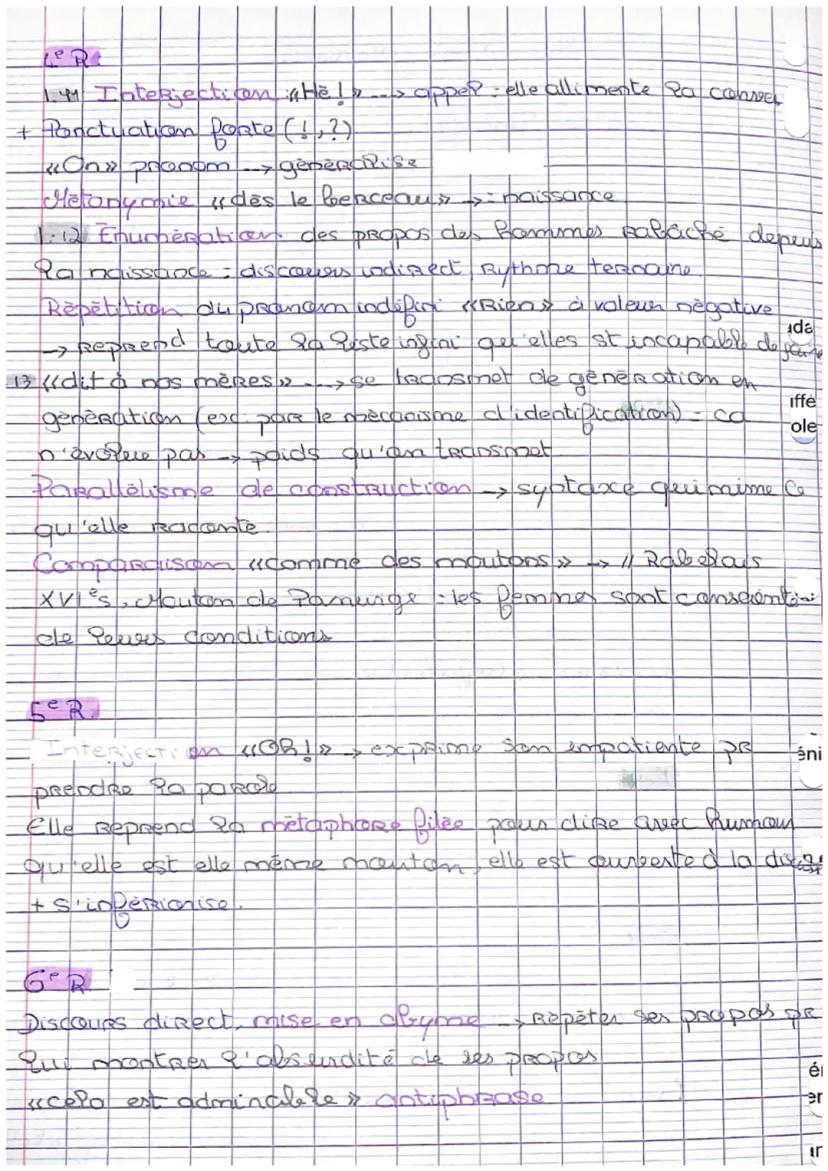 4e R.
l.11 Interjection «Hé!» --> appel : elle allimente la conver
+ Ponctuation forte (!,?)
«On» pronom --> généralise
Métonymie «dès le berceau» -> = naissance
l.12 Énumération des propos des hommes rabâché depuis
la naissance = discours indirect, Rythme ternaire.
Répétition du pronom indéfini «Rien» à valeur négative
-> Reprend toute la liste infini qu'elles st incapable de faire
ida
13 «dit à nos mères» ---> se transmet de génération en
iffé
génération (ex: par le mécanisme d'identification) = ca
ole
n'évolue pas -> poids qu'on transmet
Parallélisme de construction -> syntaxe qui mime ce
qu'elle raconte.
Comparaison «comme des moutons» -> // Rabelais
XVIe s, Mouton de Panurge : les femmes sont
de leurs conditions
5e R.
Interjection «Oh!» -> exprime son impatiente pr
éni
prendre la parole
Elle reprend la métaphore filée pour dire avec humour
qu'elle est elle même mouton, elle est ouverte à la
+ s'infériorise.
6e R
Discours direct, mise en abyme -> Répéter ses propos pr
lui montrer l'absurdité de ses propos
é
«cela est admirable» antiphrase
er
ir